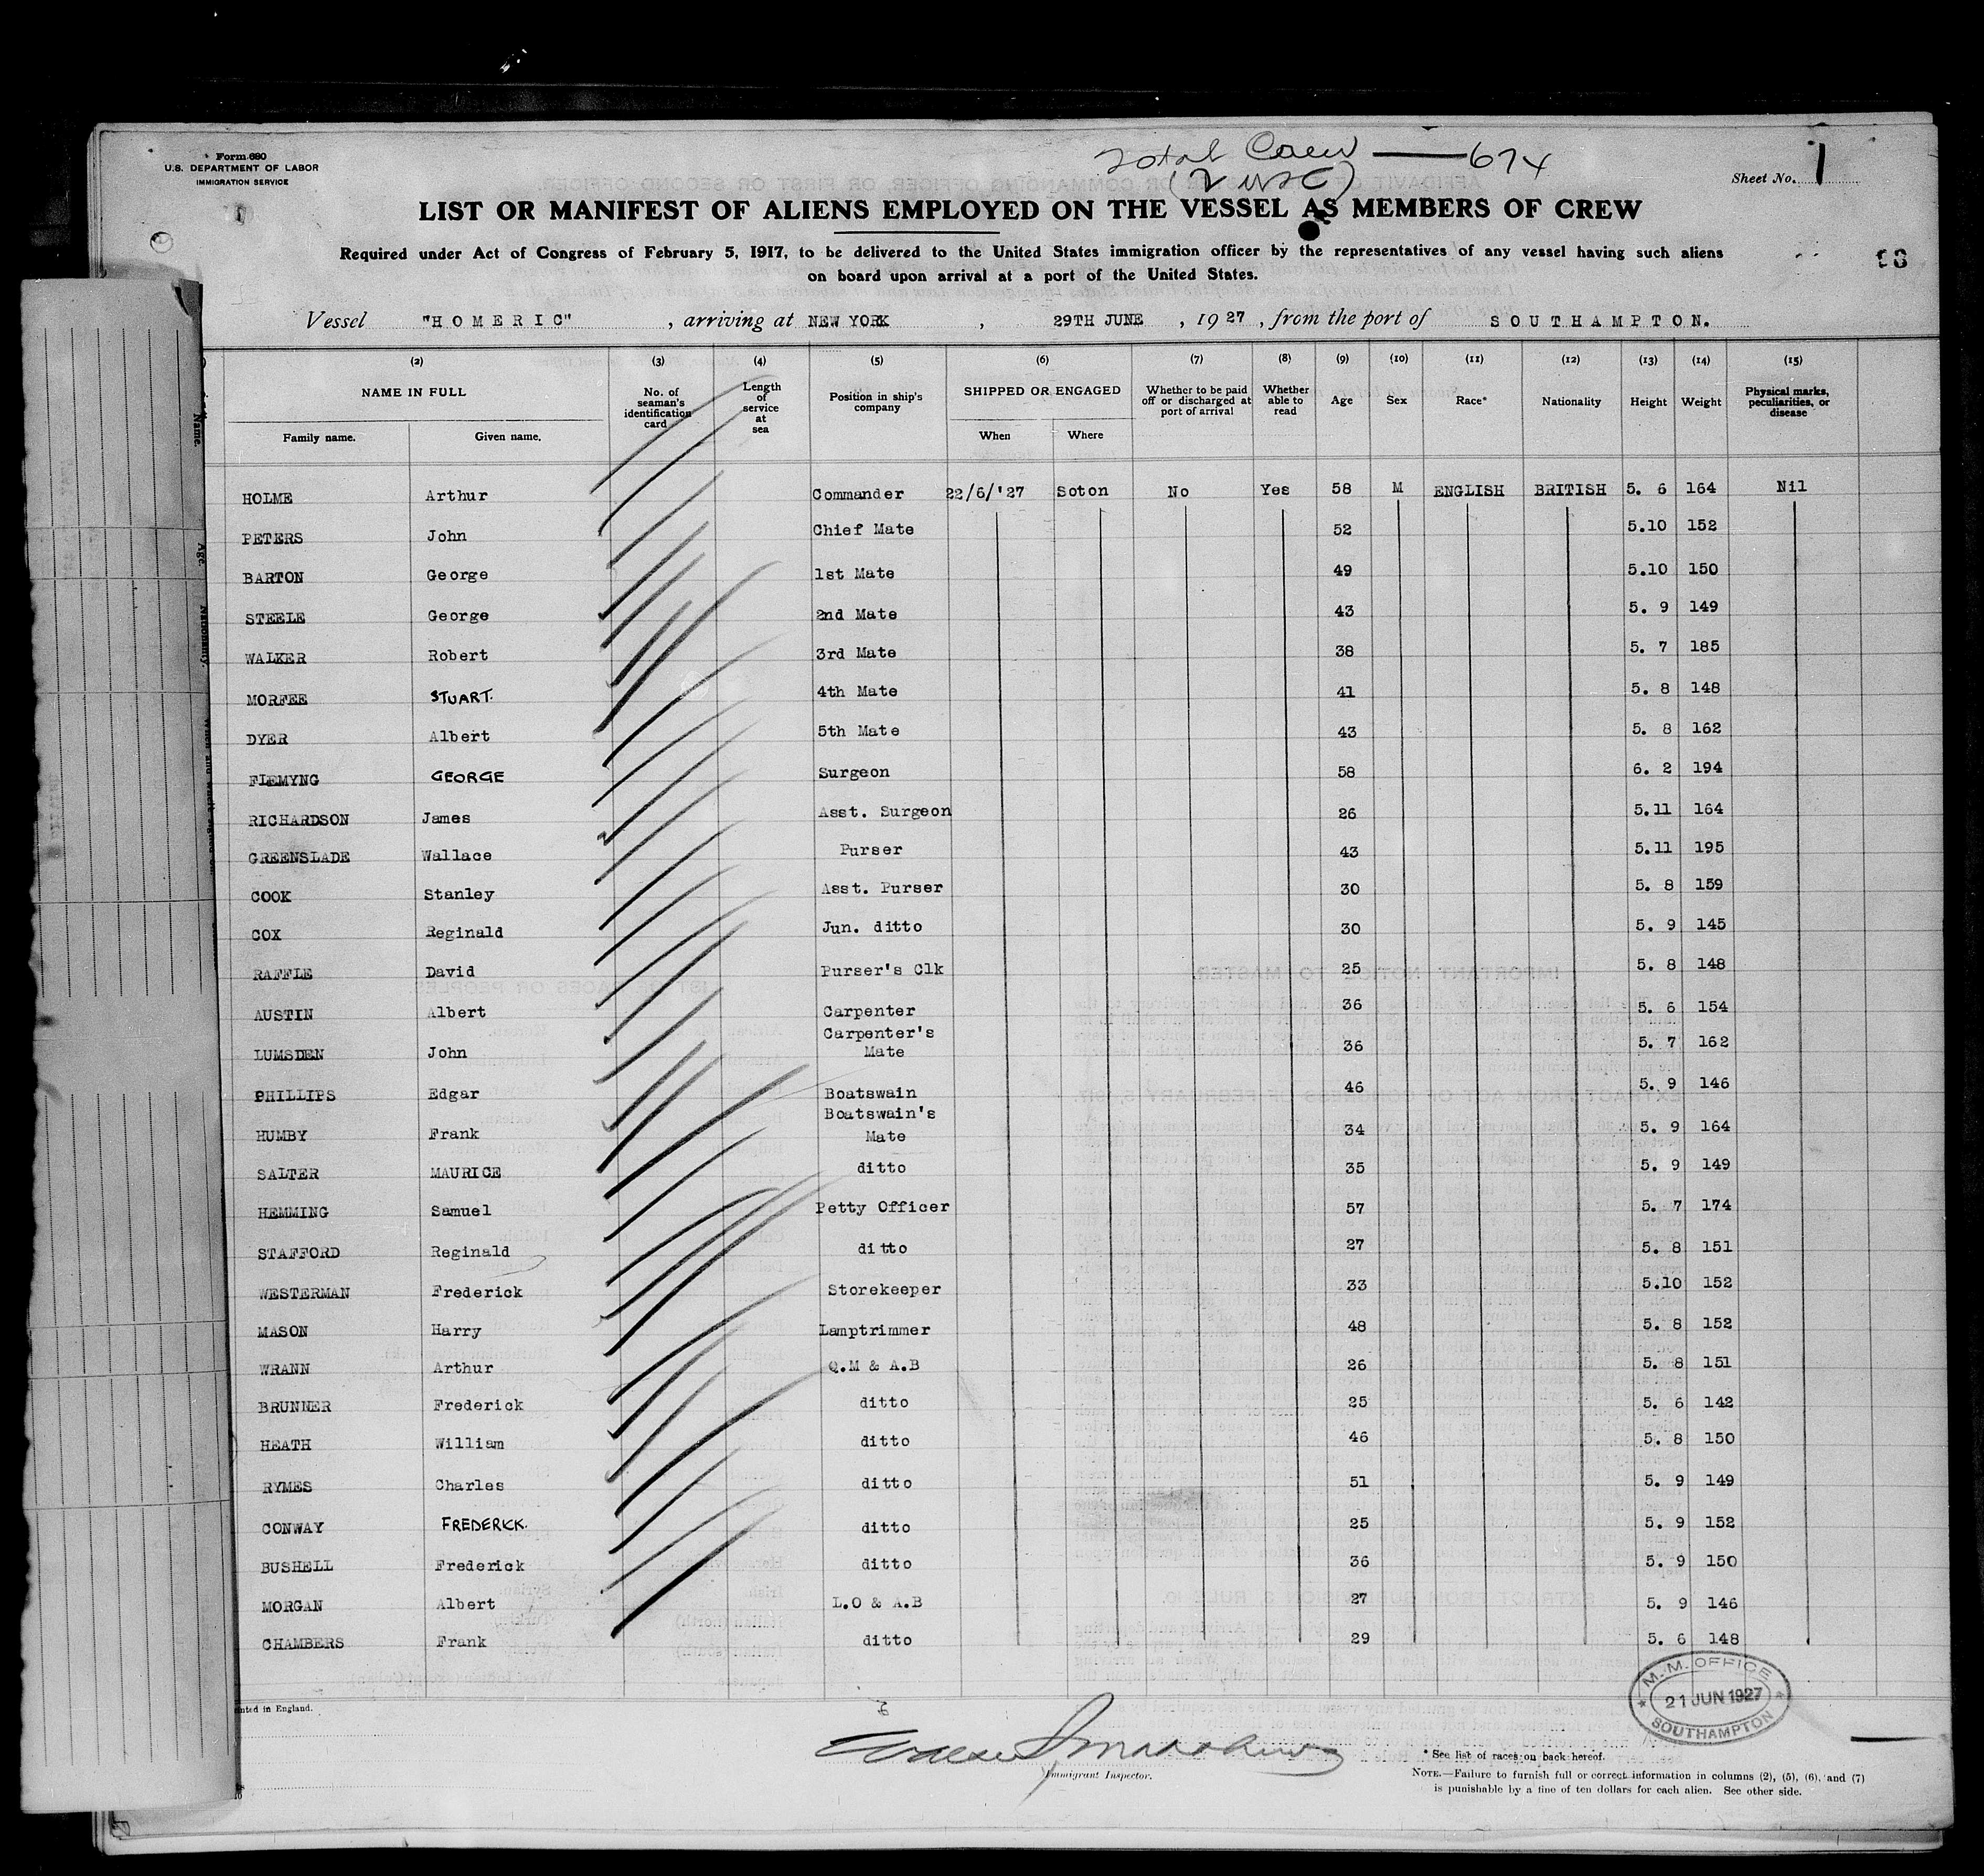 Form 680
U.S. DEPARTMENT OF LABOR
IMMIGRATION SERVICE
Total Crew — 674
Sheet No. 1
LIST OR MANIFEST OF ALIENS EMPLOYED ON THE VESSEL AS MEMBERS OF CREW
Required under Act of Congress of February 5, 1917, to be delivered to the United States immigration officer by the representatives of any vessel having such aliens
on board upon arrival at a port of the United States.
Vessel "HOMERIC", arriving at NEW YORK, 29TH JUNE, 1927, from the port of SOUTHAMPTON.
(2) (3) (4) (5) (6) (7) (8) (9) (10) (11) (12) (13) (14) (15)
NAME IN FULL No. of seaman's identification card Length of service at sea Position in ship's company SHIPPED OR ENGAGED Whether to be paid off or discharged at port of arrival Whether able to read Age Sex Race* Nationality Height Weight Physical marks, peculiarities, or disease
Family name. Given name. When Where
HOLME Arthur Commander 22/6/'27 Soton No Yes 58 M ENGLISH BRITISH 5. 6 164 Nil
PETERS John Chief Mate 52 5.10 152
BARTON George 1st Mate 49 5.10 150
STEELE George 2nd Mate 43 5. 9 149
WALKER Robert 3rd Mate 38 5. 7 185
MORFEE STUART. 4th Mate 41 5. 8 148
DYER Albert 5th Mate 43 5. 8 162
FLEMYNG GEORGE Surgeon 58 6. 2 194
RICHARDSON James Asst. Surgeon 26 5.11 164
GREENSLADE Wallace Purser 43 5.11 195
COOK Stanley Asst. Purser 30 5. 8 159
COX Reginald Jun. ditto 30 5. 9 145
RAFFLE David Purser's Clk 25 5. 8 148
AUSTIN Albert Carpenter 36 5. 6 154
LUMSDEN John Carpenter's Mate 36 5. 7 162
PHILLIPS Edgar Boatswain 46 5. 9 146
HUMBY Frank Boatswain's Mate 34 5. 9 164
SALTER MAURICE ditto 35 5. 9 149
HEMMING Samuel Petty Officer 57 5. 7 174
STAFFORD Reginald ditto 27 5. 8 151
WESTERMAN Frederick Storekeeper 33 5.10 152
MASON Harry Lamptrimmer 48 5. 8 152
WRANN Arthur Q.M & A.B 26 5. 8 151
BRUNNER Frederick ditto 25 5. 6 142
HEATH William ditto 46 5. 8 150
RYMES Charles ditto 51 5. 9 149
CONWAY FREDERICK. ditto 25 5. 9 152
BUSHELL Frederick ditto 36 5. 9 150
MORGAN Albert L.O & A.B 27 5. 9 146
CHAMBERS Frank ditto 29 5. 6 148
M.M. OFFICE
21 JUN 1927
SOUTHAMPTON
in England.
Immigrant Inspector.
* See list of races on back hereof.
NOTE.—Failure to furnish full or correct information in columns (2), (5), (6), and (7)
is punishable by a fine of ten dollars for each alien. See other side.
Name.
Age.
Nationality.